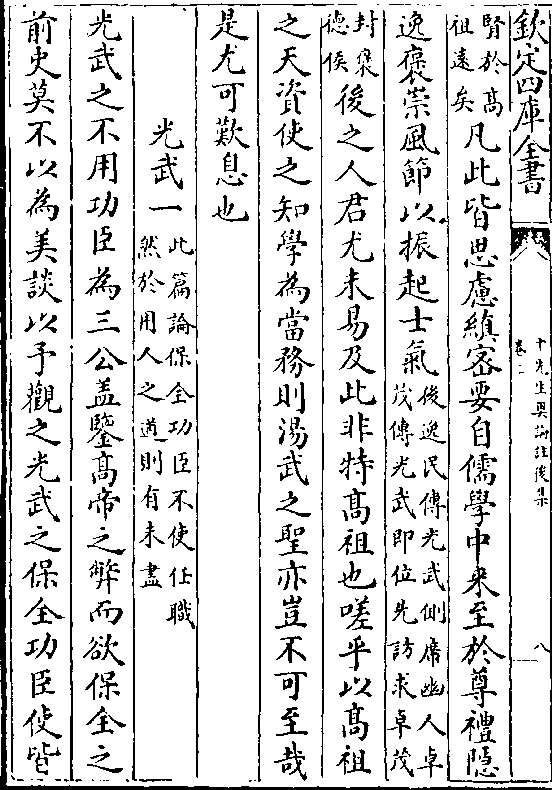 欽定四庫全書
十先生奧論註後集
卷二
八
賢於高
祖遠矣
凡此皆思慮縝密要自儒學中来至於尊禮隱
逸褒崇風節以振起士氣
後逸民傳光武側席幽人卓
茂傳光武即位先訪求卓茂
封褒
德侯
後之人君尤未易及此非特高祖也嗟乎以高祖
之天資使之知學為當務則湯武之聖亦豈不可至哉
是尤可歎息也
光武一
此篇論保全功臣不使任職
然於用人之道則有未盡
光武之不用功臣為三公盖鑒高帝之弊而欲保全之
前史莫不以為美談以予觀之光武之保全功臣使皆